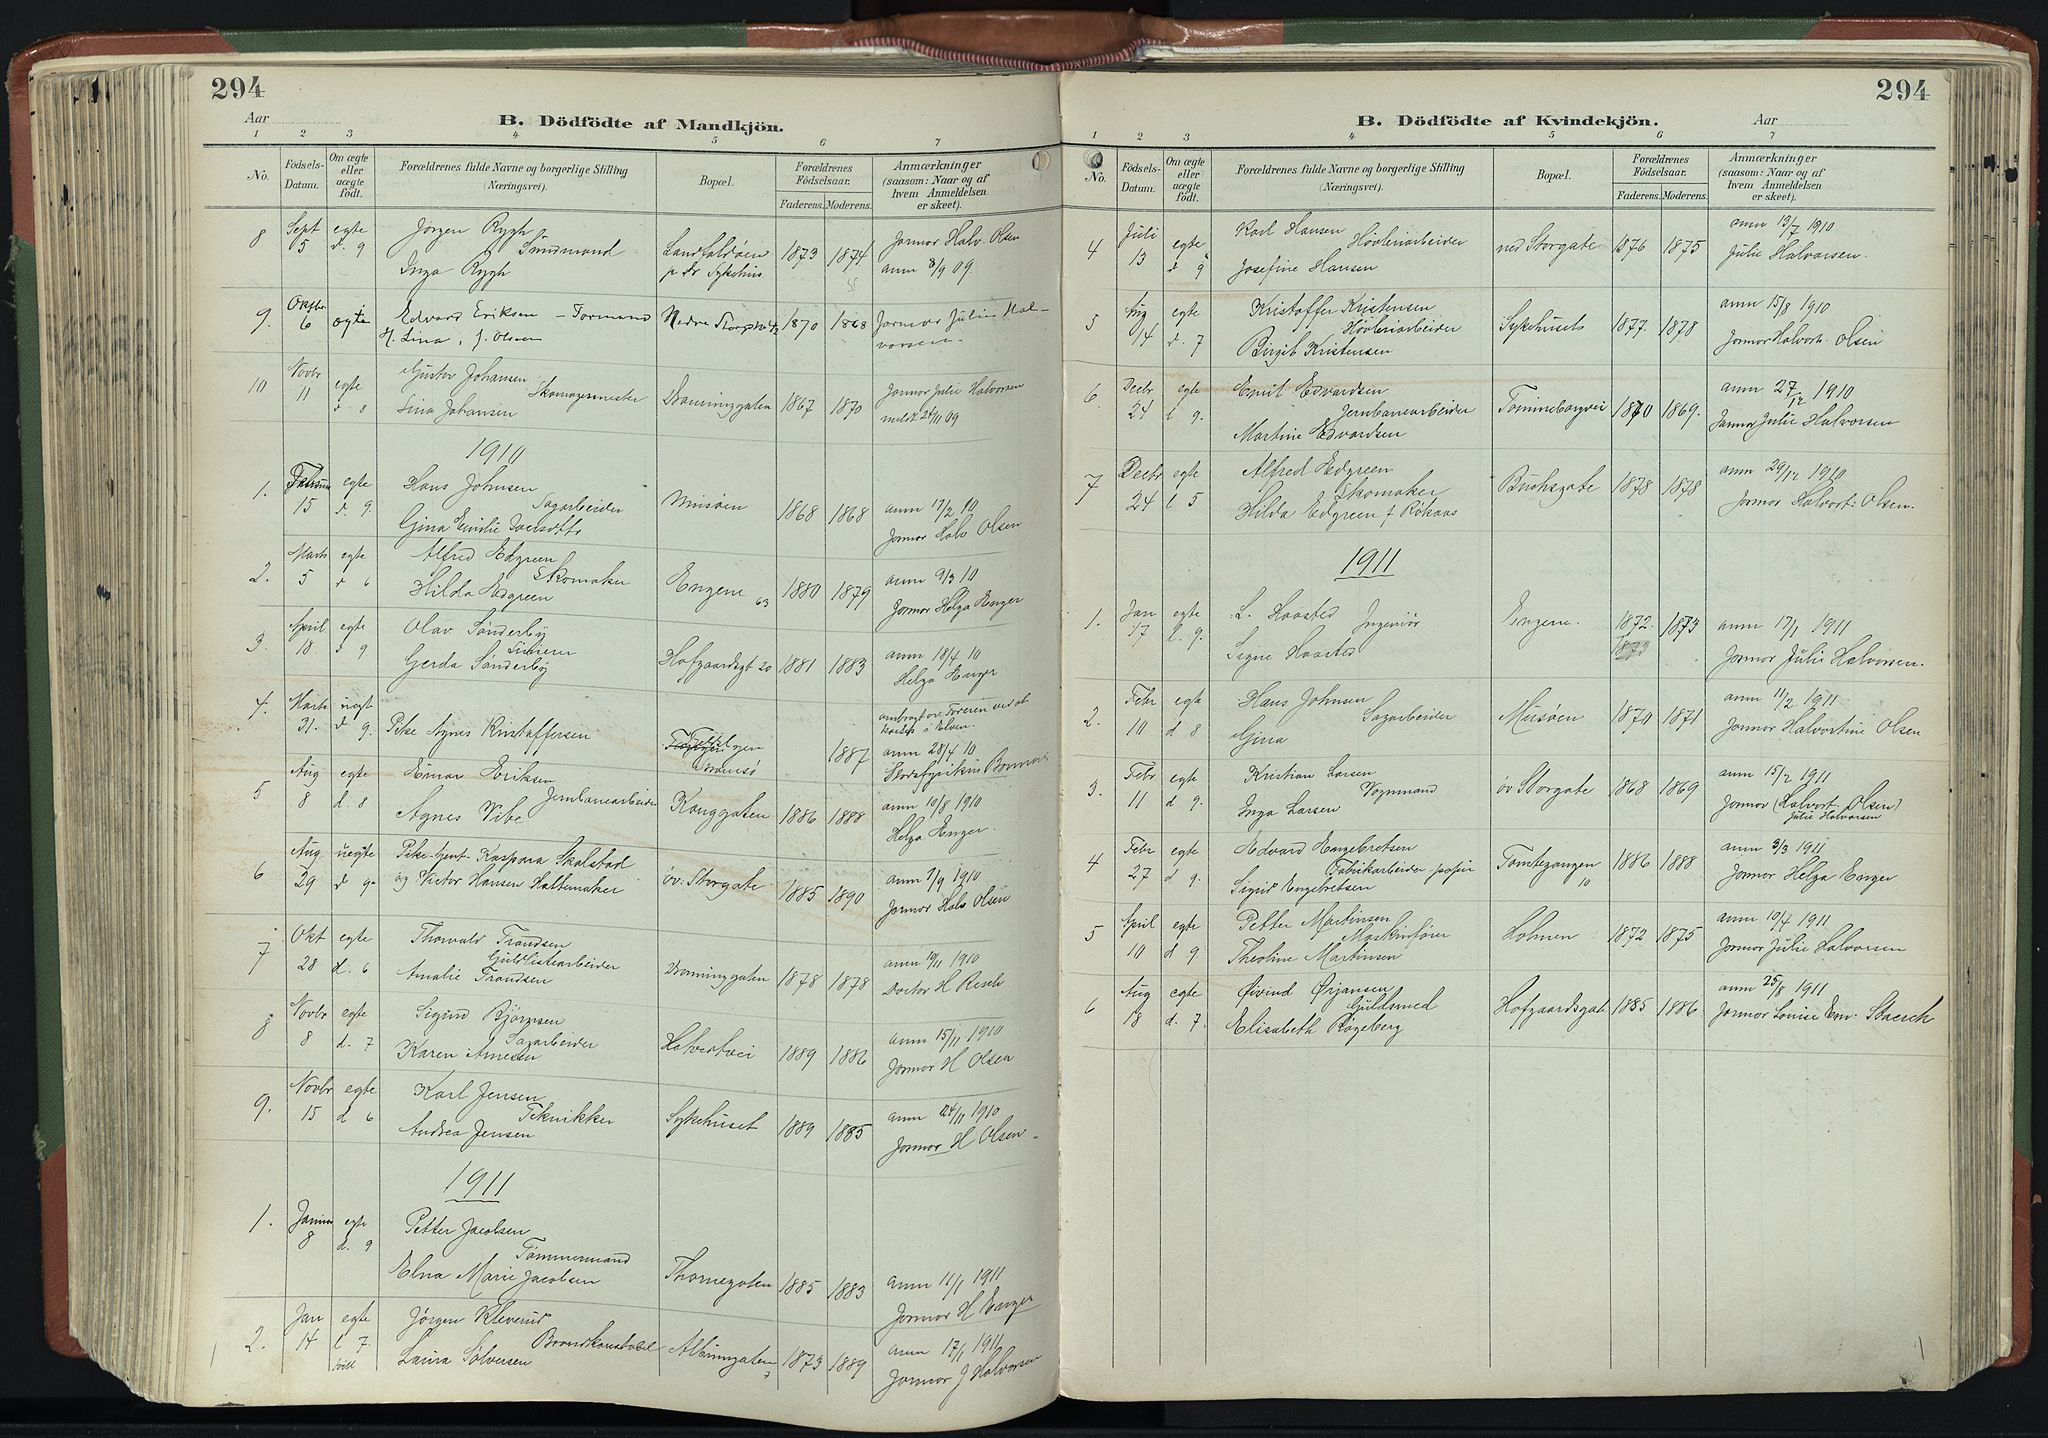 294
Aar
B. Dödfödte af Mandkjön.
1 2 3 4 5 6 7
No.
Födsels-Datum.
Om ægte eller uægte födt.
Forældrenes fulde Navne og borgerlige Stilling (Næringsvei).
Bopæl.
Forældrenes Födselsaar.
Faderens. Moderens.
Anmærkninger (saasom: Naar og af hvem Anmeldelsen er skeet).
8 Sept egte Jørgen Rygh
5 d. 9 Inga Rygh 1873 1874 Jormor Halv. Olsen
anm 8/9 09
9. Oktbr egte Edvard Eriksen – Formand Nedre 1870 1868 Jormor Julie Hal-
6 H. Lina, f. Olsen vorsen
10 Novbr egte Gustav Johansen Jormor Julie Halvorsen
11 d 8 Lina Johansen Skomagermester Dronninggaten 1867 1870 meldt 24/11 09
1910
1. egte Hans Johnsen
15 d. 9. Sagarbeider Miusøen 1868 1868 anm 17/2 10
Gina Emilie Jormor Halv Olsen
2. Marts egte Alfred Edgreen
5 d 6 Skomaker Engene 63 1880 1879 anm 9/3 10
Hilda Edgreen Jormor Helga Enger
3. April egte Olav Sønderby
18 d 9 Gerda Sønderby Hofgaardsgt 20 1881 1883 anm 18/4 10
Helga Enger
4. Marts uegt
31. d 9. Pike Agnes Kristoffersen 1887 anm 28/4 10
5 Aug egte Einar Eriksen
8 d. 8 Jernbanearbeider Konggaten 1886 1888 anm 10/8 1910
Agnes Vibe Helga Enger.
6 Aug uegte Pike Kaspara Skalstad
29 d 9 og Victor Hansen Hattemaker øv: Storgate 1885 1890 anm 1/9 1910
Jormor Halv Olsen
7 Okt egte Thorvald Trondsen
28 d. 6 Guldlistearbeider Dronninggaten 1878 1878 anm 1910
Amalie Trondsen Doctor H Resch
8 Novbr egte Sigurd Bjørgsen
8 d. 7 Sagarbeider 1889 1886 anm 15/11 1910
Karen Arnesen Jormor H Olsen
9. Novbr egte Karl Jensen
15 d 6 Teknikker Sykehuset 1889 1885 anm 24/11 1910
Andrea Jensen Jormor H Olsen
1911
1. egte Petter Jacobsen
8 d. 9 Tømmermand
Elna Marie Jacobsen Thornegaten 1885 1883 anm 11/1 1911
Jormor H Enger
2. Jan egte Jørgen Kleverud
14 l 7. Brandkonstabel Albumgaten 7 1873 1889 anm 17/1 1911
Laura Sølversen Jormor J Halvorsen
294
B. Dödfödte af Kvindekjön.
Aar
1 2 3 4 5 6 7
No.
Födsels-Datum.
Om ægte eller uægte födt.
Forældrenes fulde Navne og borgerlige Stilling (Næringsvei).
Bopæl.
Forældrenes Födselsaar.
Faderens. Moderens.
Anmærkninger (saasom: Naar og af hvem Anmeldelsen er skeet).
4 Juli egte Karl Hansen anm 13/7 1910
13 d 9 Høvleriarbeider ned Storgate 1876 1875 Julie Halvorsen.
Josefine Hansen
5 Aug egte Kristoffer Kristensen anm 15/8 1910
14 d. 7 Høvleriarbeider Sykehuset 1877. 1878 Jormor Halvort. Olsen
Birgit Kristensen
6 Decbr egte Emil Edvardsen anm 27/12 1910
24 l 9. Jernbanearbeider 1870 1869. Jormor Julie Halvorsen
Martine Edvardsen
7 Decbr egte Alfred Edgreen anm 29/12 1910
24 l 5 Skomaker Buchsgate 1878 1878 Jormor Halvort: Olsen.
Hilda Edgreen f Røkaas
1911
1. Jan egte L. Haasted Ingeniør Engene. 1872. 1873 anm 17/1 1911
17 l. 9. Signe Haasted 1873 Jormor Julie Halvorsen.
2. Febr egte Hans Johnsen Sagarbeider Miusøen 1870 1871 anm 11/2 1911
10 d 8 Gina Jormor Halvortine Olsen
3. Febr egte Kristian Larsen Vognmand øv Storgate 1868 1869 anm 15/2 1911
11 d 9. Inga Larsen Jormor (Halvort. Olsen)
Julie Halvorsen
4 Febr egte Edvard Engebretsen anm 3/3 1911
27 d 9. Fabrikarbeider Tomtegangen 10 1886 1888 Jormor Helga Enger
Sigrid Engebretsen
5 April egte Petter Martinsen anm 10/4 1911
10 d 9 Maskinfører Holmen 1872 1875 Jormor Julie Halvorsen
Theoline Martinsen
6 Aug egte Øivind Ørjansen anm 25/8 1911
18 d. 7. Guldsmed Hofgaardsgate 1885 1886 Jormor Louise Em: Staerck
Elisabeth Røgeberg